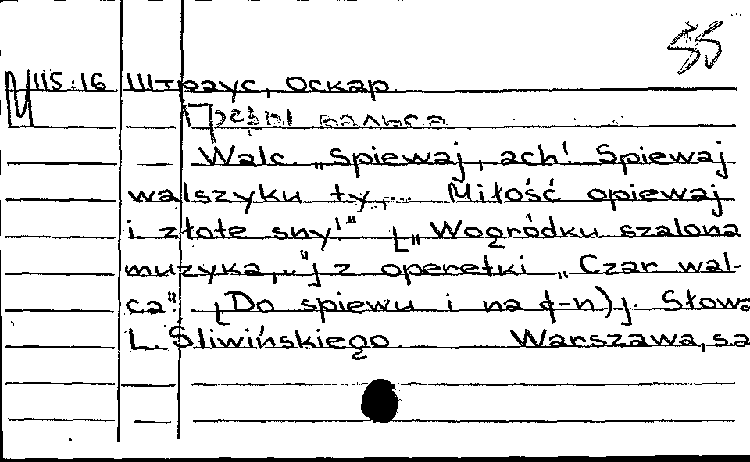 55
М 115:16 Штраус, Оскар.
вальса
Walc „Spiewaj, ach! Spiewaj
walszyku ty,.. Miłość opiewaj
i złote sny!" [„Wogródku szalona
muzyka,.."] z operetki „Czar wal-
ca". [Do spiewu i na ф-п)]. Słowa
L. Śliwińskiego. Warszawa, sa